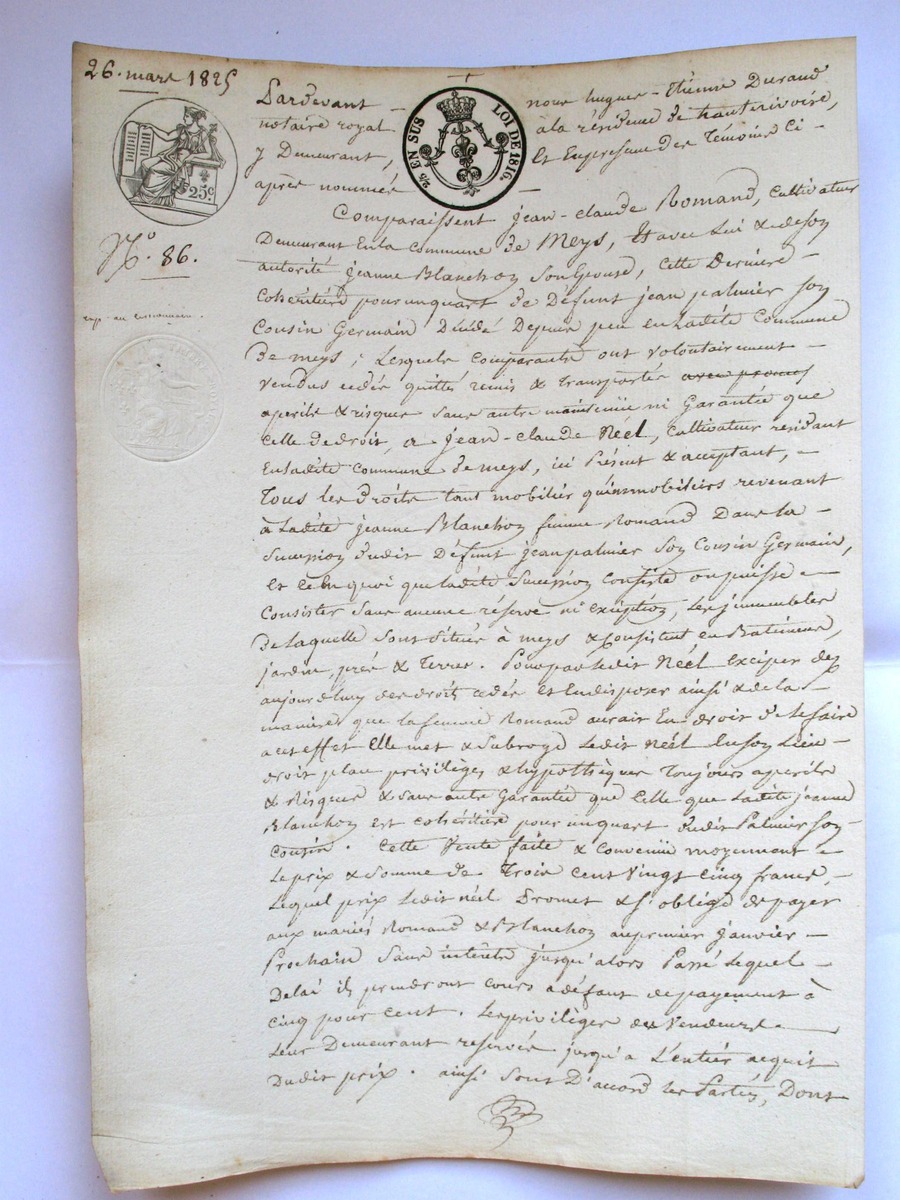 26. mars 1825
Pardevant - nous hugues-Etienne Durand
notaire royal à la résidence de hauterivoire,
y Demeurant, Et En presence des Témoins Ci-
après nommés -
2/5 EN SUS LOI DE 1816.
25c.
N.o 86.
Comparaissent jean-claude Romand, Cultivateur
Demeurant En la Commune de Meys, Et avec Lui & de son
autorité jeanne Blanchon Son Epouse, Cette Derniere -
Cohéritière pour un quart de Défunt jean palmier son
Cousin Germain Décédé Depuis peu en Ladite Commune
De meys; Lesquels Comparants ont volontairement -
vendus cédés quittés remis & Transportés avec promes
a perils & risques sans autre maintenüe ni Garantée que
Celle de droit, a jean-claude Néel, Cultivateur résidant
En Ladite Commune de meys, ici Présent & acceptant, -
Tous les Droits tant mobiliers qu'immobiliers revenant
à Ladite jeanne Blanchon femme Romand Dans la -
Succession dudit Défunt jean palmier Son Cousin Germain,
Et Ce En quoi que Ladite Succession Consiste ou puisse -
Consister Sans aucune réserve ni Exception, Les immeubles
de Laquelle Sont Situés à meys & Consistent en Batiments,
jardin, prés & Terres. Pour par Ledit Néel Exciper des
aujourd'huy des droits cédés et En disposer ainsi & de la -
maniere que la femme Romand aurait En droit de le faire
a cet effet Elle met & Subroge Ledit Néel En son Lieu -
droit place privilèges & hypothèques Toujours a perils
& Risques & sans autre Garantée que Celle que Ladite jeanne
Blanchon Est Cohéritière pour un quart dudit Palmier Son
Cousin. Cette Vente faite & Convenüe moyennant -
Le prix & Somme de Trois Cent Vingt Cinq francs, -
Lequel prix Ledit néel Promet & S'oblige de payer
aux mariés Romand & Blanchon au premier janvier -
Prochain Sans intérêts jusqu'alors Passé Lequel -
Delai ils prendront Cours a défaut de payement à
Cinq pour Cent. Les privilèges de Vendeurs -
Leur Demeurant reservés jusqu'a L'entier acquit
Dudit prix. ainsi Sont D'accord les Parties, Dont